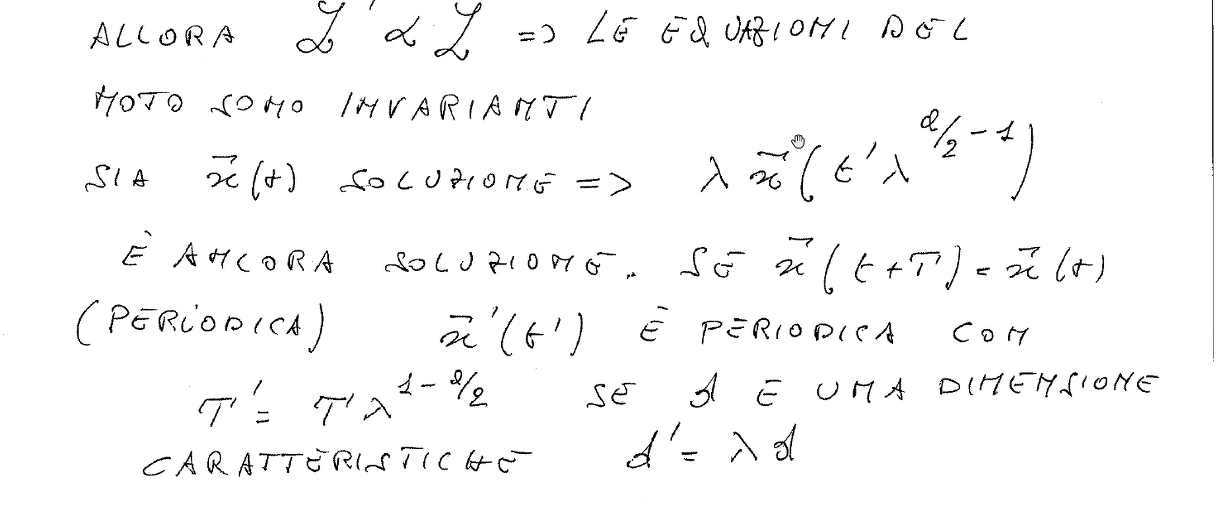 ALLORA ℒ' α ℒ => LE EQUAZIONI DEL
MOTO SONO INVARIANTI
SIA x⃗(t) SOLUZIONE => λ x⃗(t'λ^{α/2-1})
È ANCORA SOLUZIONE. SE x⃗(t+T) = x⃗(t)
(PERIODICA) x⃗'(t') È PERIODICA CON
T' = T λ^{1-α/2} SE d E UNA DIMENSIONE
CARATTERISTICHE d' = λd